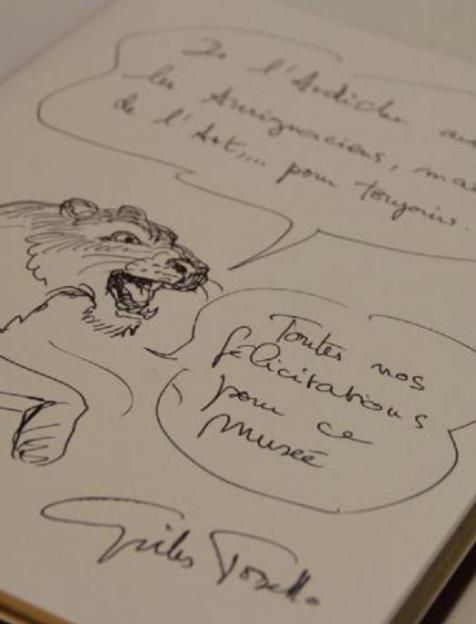 De l'Ardèche aux
les Aurignaciens, mais
de l'Art,... pour toujours.
Toutes nos
félicitations
pour ce
musée
Gilles Tosello